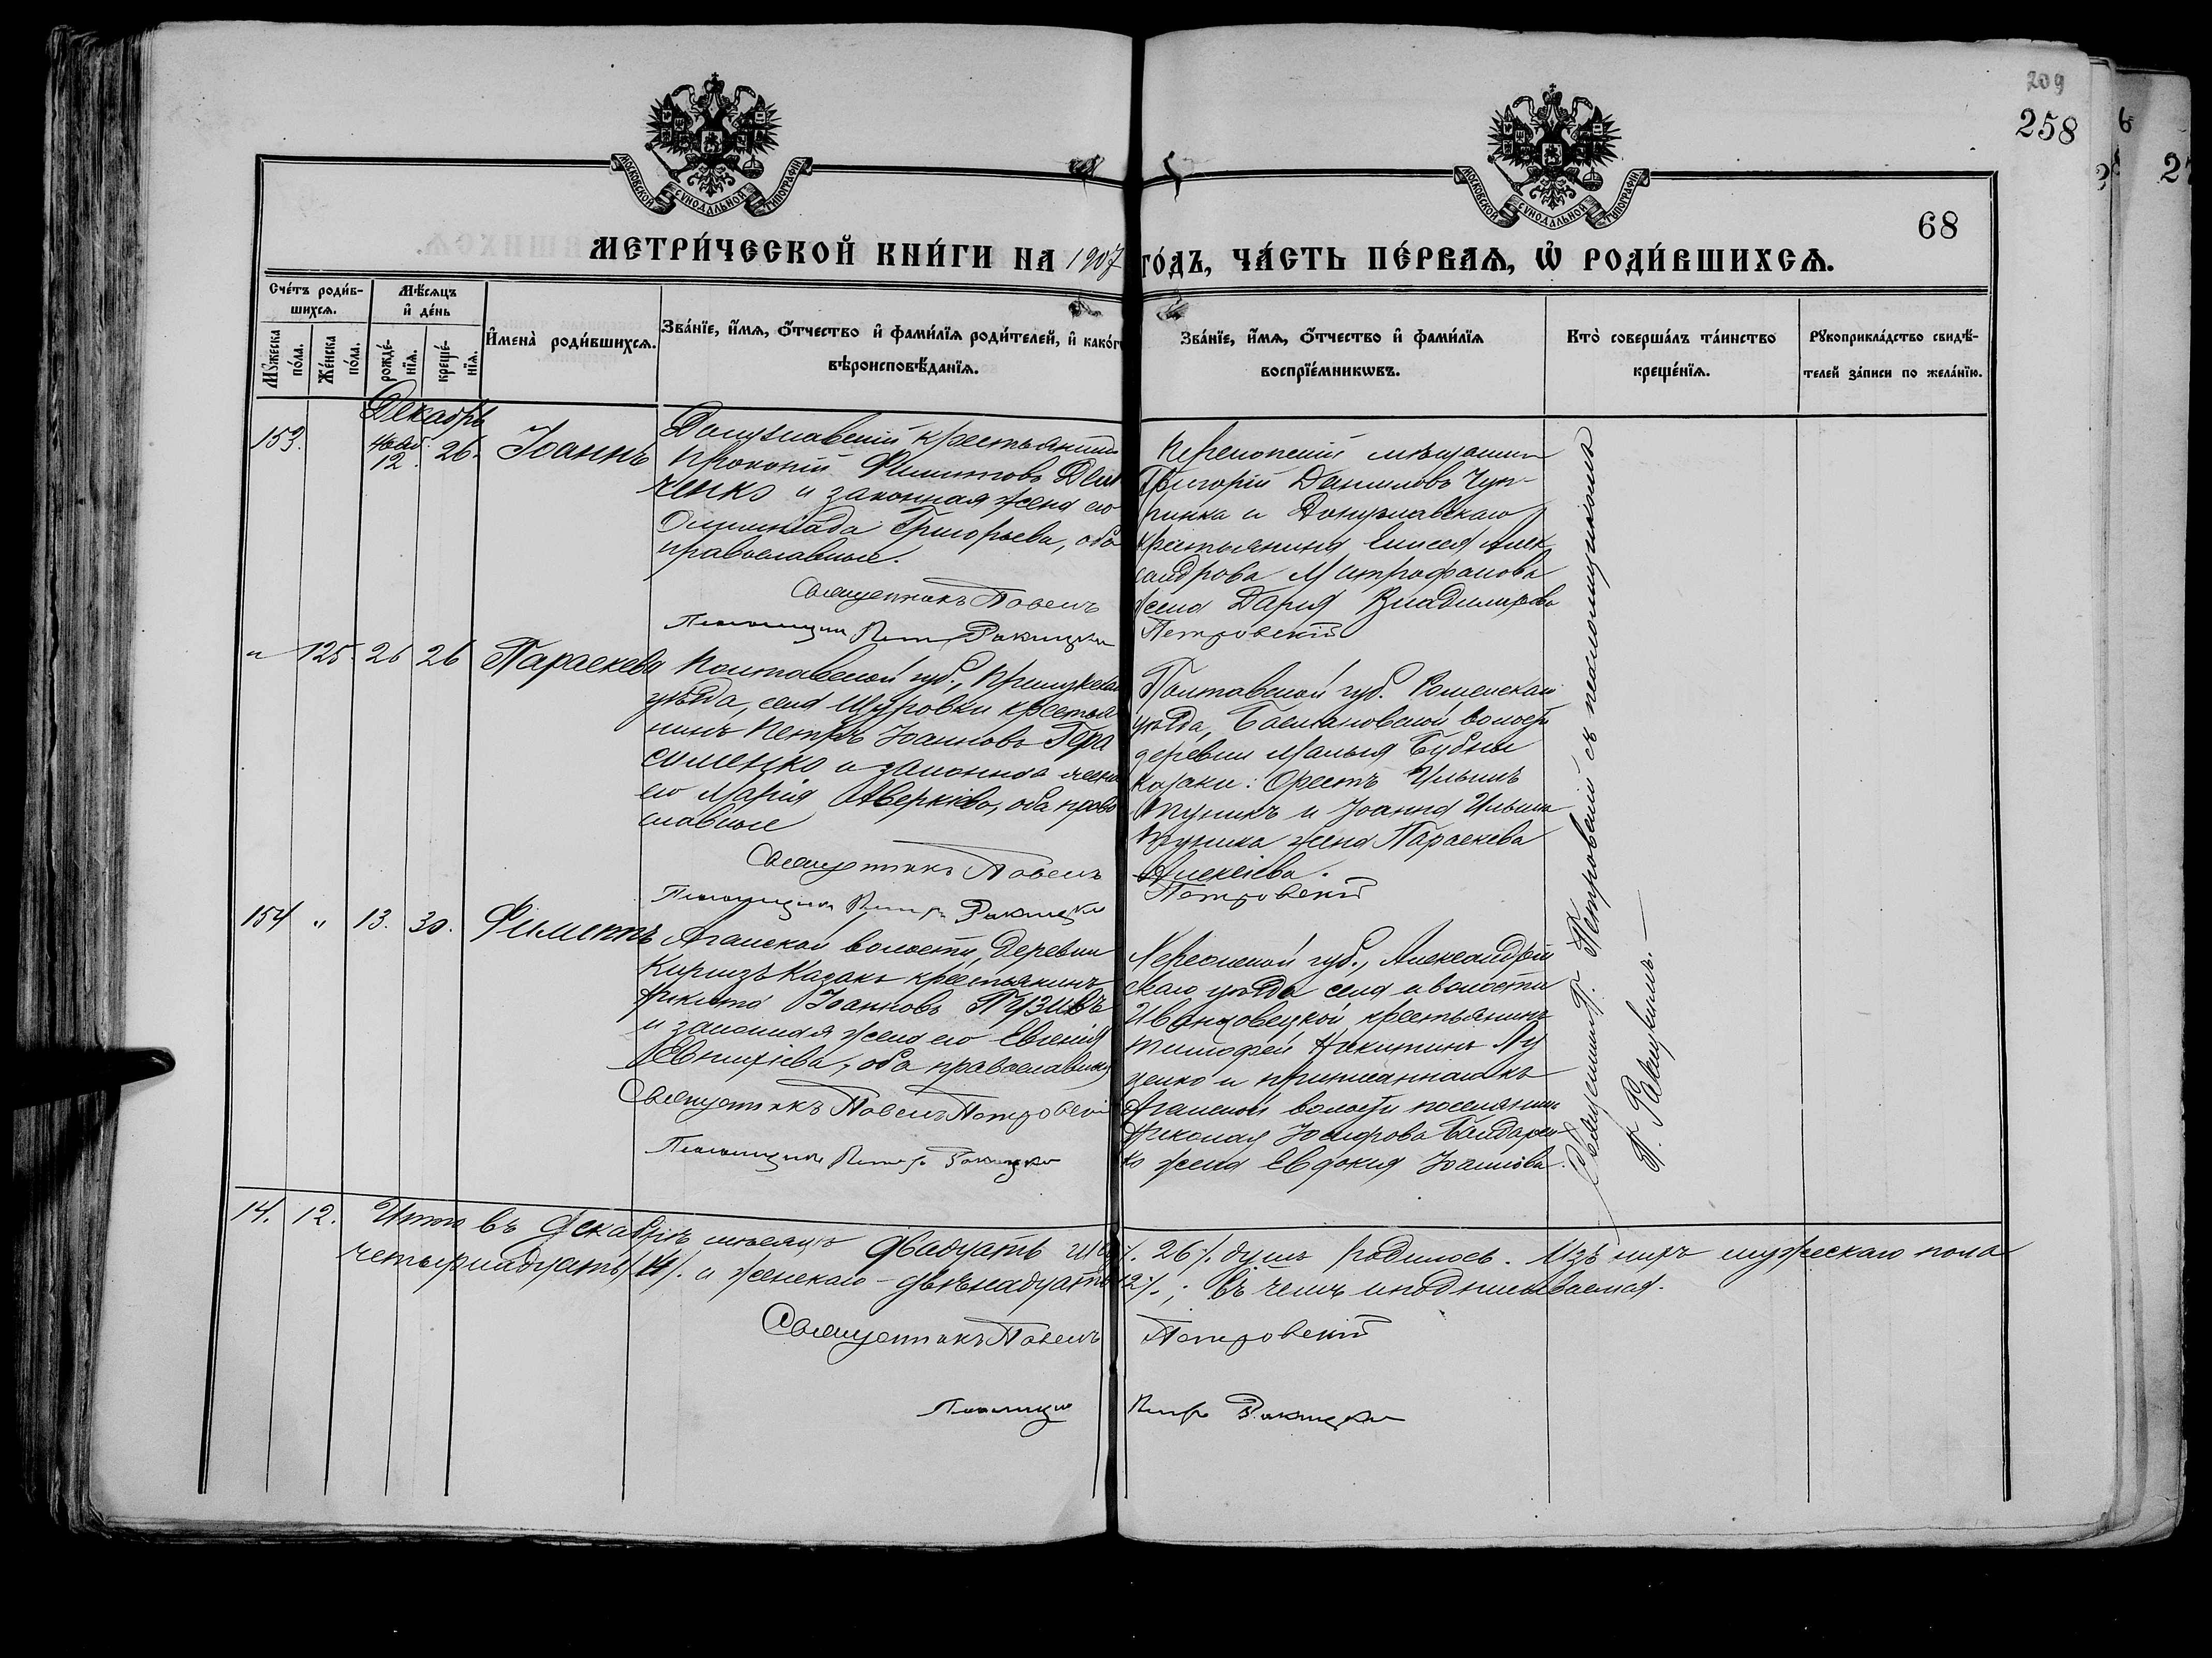 209
258
68
МОСКОВСКОЙ СѴНОДАЛЬНОЙ ТИПОГРАФІИ
МОСКОВСКОЙ СѴНОДАЛЬНОЙ ТИПОГРАФІИ
МЕТРИ́ЧЕСКОЙ КНИ́ГИ НА 1907 ГО́ДЪ, ЧА́СТЬ ПЕ́РВАѦ, Ѡ҆ РОДИ́ВШИХСѦ.
Сче́тъ роди́в-
шихсѧ.
Мꙋжеска по́ла.
Же́нска по́ла.
Мѣ́сѧцъ
и҆ де́нь
рожде́-
нїѧ.
креще́-
нїѧ.
И҆мена̀ роди́вшихсѧ.
Зва́нїе, и҆́мѧ, ѻ҆́тчество и҆ фами́лїѧ роди́телей, и҆ како́г
вѣроисповѣ́данїѧ.
Зва́нїе, и҆́мѧ, ѻ҆́тчество и҆ фами́лїѧ
воспрїе́мникѡвъ.
Кто̀ соверша́лъ та́инство
креще́нїѧ.
Рꙋкоприкла́дство свидѣ́-
телей за́писи по жела́нїю.
Декабрь
153.
Нояб.
12. 26.
Іоаннъ
крестьянинъ
Прокопій Филиповъ
ченко и законная жена его
Григорьева, оба
православные.
Священникъ Павелъ
Псаломщикъ Петръ Ракицкій
мѣщанинъ
Григорій Даниловъ Чуп-
ринка и
крестьянина Елисея Алек
сандрова Митрофанова
жена Дарія Владимирова
Петровскій
" 125. 26 26
Параскева
Полтавской губ., Прилукскаго
уѣзда, села Щуровки крестья
нинъ Петръ Іоанновъ Гера
сименко и законная жена
его Марія Аверкіева, оба право
славные
Священникъ Павелъ
Псаломщикъ Петръ Ракицкій
Полтавской губ. Роменскаго
уѣзда, Басмановской волости
деревни Малыя Бубны
казаки: Орестъ Ильинъ
и Іоанна Ильина
жена Параскева
Алексіева.
Петровскій
154 " 13. 30.
Филиппъ
волости, деревни
Киргизъ Казакъ крестьянинъ
Никита Іоанновъ Пузиковъ
и законная жена его Евгенія
Евтихіева, оба православные
Священникъ Павелъ Петровскій
Псаломщикъ Петръ Ракицкій
Херсонской губ., Александрій
скаго уѣзда села и волости
крестьянинъ
Тимофей Никитинъ Лу
ценко и
волости поселянина
Николая Іосифова Бондарен
ко жена Евдокія Іоаннова.
Священникъ П. Петровскій съ псаломщикомъ
П. Ракицкимъ.
14. 12. Итого въ Декабрѣ мѣсяцѣ двадцать шес /. 26 /. душъ родилось. Изъ нихъ мужескаго пола
четырнадцать /. 14 /. и женскаго - двѣнадцать /. 12 /.; въ чемъ и подписываемся.
Священникъ Павелъ Петровскій
Псаломщикъ Петръ Ракицкій